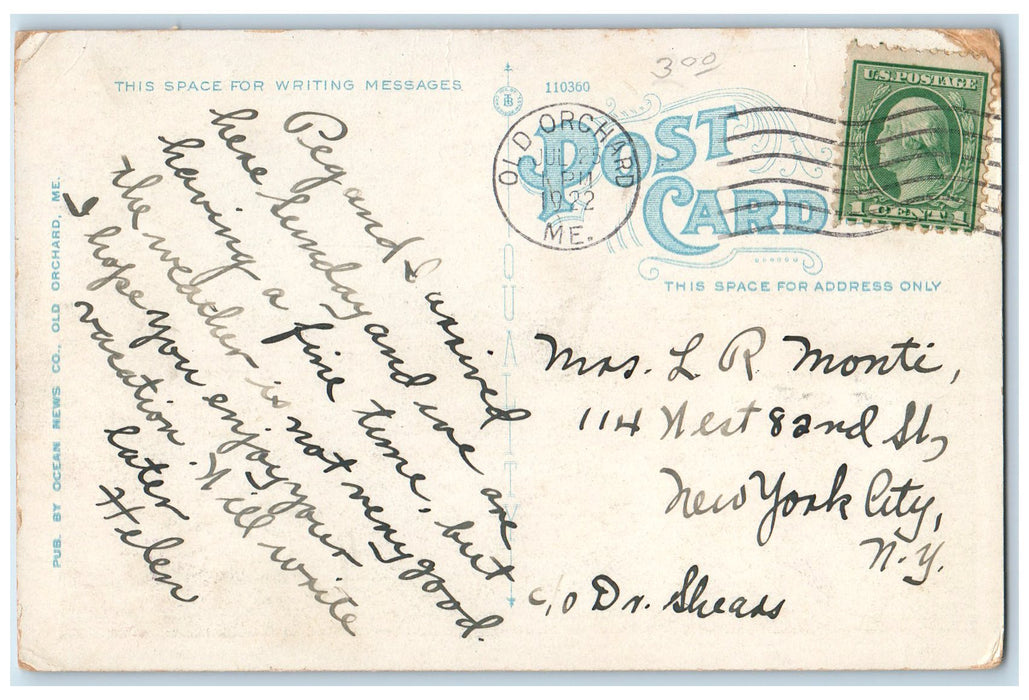 THIS SPACE FOR WRITING MESSAGES
Peg and I arrived
here Sunday and we are
having a fine time, but
the weather is not very good.
I hope you enjoy your
vacation. Will write
later
Helen
PUB. BY OCEAN NEWS CO., OLD ORCHARD, ME.
110360
3.00
OLD ORCHARD
JUL
PM
1922
ME.
POST
CARD
U.S. POSTAGE
1 CENT 1
QUALITY
THIS SPACE FOR ADDRESS ONLY
Mrs. L R. Monti,
114 West 82nd St,
New York City,
N.Y.
c/o Dr. Shears